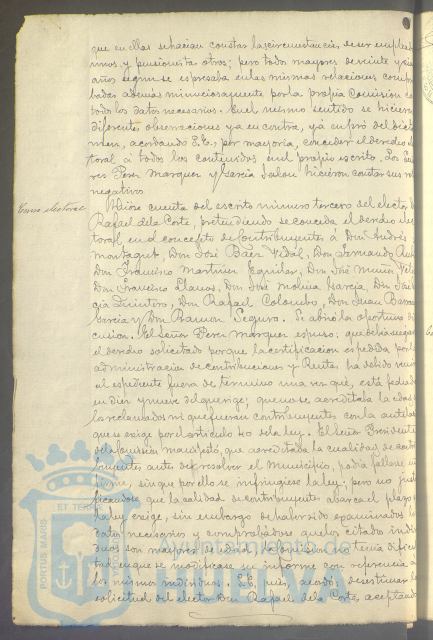 que en ellas se hacian constar las circunstancias de ser emplea
unos y pensionistas otros; pero todos mayores de veinte y cinco
años segun se espresaba en las mismas relaciones compro
badas ademas minuciosamente por la propia Comision co
todos los datos necesarios. En el mismo sentido se hicieron
diferentes observaciones ya en contra, ya en pró del dictá
men, acordando S.E. por mayoria, conceder el derecho elec
toral á todos los contenidos en el propio escrito. Los Seño
res Perez Marquez y Garcia Jalon hicieron constar sus votos
negativos.
Censo electoral
Hízose cuenta del escrito número tercero del elector D.
Rafael de la Corte, pretendiendo se conceda el derecho elec
toral, en el concepto de contribuyentes á Don Andrés
Montagut, Don José Baez Vidal, Don Fernando
Don Francisco Martinez Eguilaz, Don José Muñoz
Don Francisco Llanos, Don José Molina Garcia, Don José
Quintero, Don Rafael Colombo, Don Juan
Garcia y Don Ramon Seguro. Se abrió la oportuna dis
cusion. El Señor Perez Marquez espuso; que debia negarse
el derecho solicitado porque la certificacion espedida por la
administracion de contribuciones y Rentas ha debido venir
al espediente fuera de termino una vez que, está fechada
en diez y nueve del que rige; que no se acreditaba la edad de
los reclamados ni que fuesen contribuyentes con la antelacion
que se exige por el articulo 40 de la ley. El Señor Presidente
de la Comision manifestó, que acreditada la cualidad de contri
buyente, antes de resolver el Municipio, podia fallarse en
forma, sin que por ello se infringiese la ley; pero no justi
ficandose que la calidad de contribuyente abarca el plazo que
la ley exige, sin embargo de haber sido examinados los
datos necesarios y comprobádose que los citados indivi
duos son mayores de edad, la Comision no tenia dificul
tad en que se modificase su informe con referencia á
los mismos individuos. S.E. pues, acordó desestimar la
solicitud del elector Don Rafael de la Corte, aceptando
PORTUS MARIS
ET TERRAE
Ayuntamiento de
HUELVA